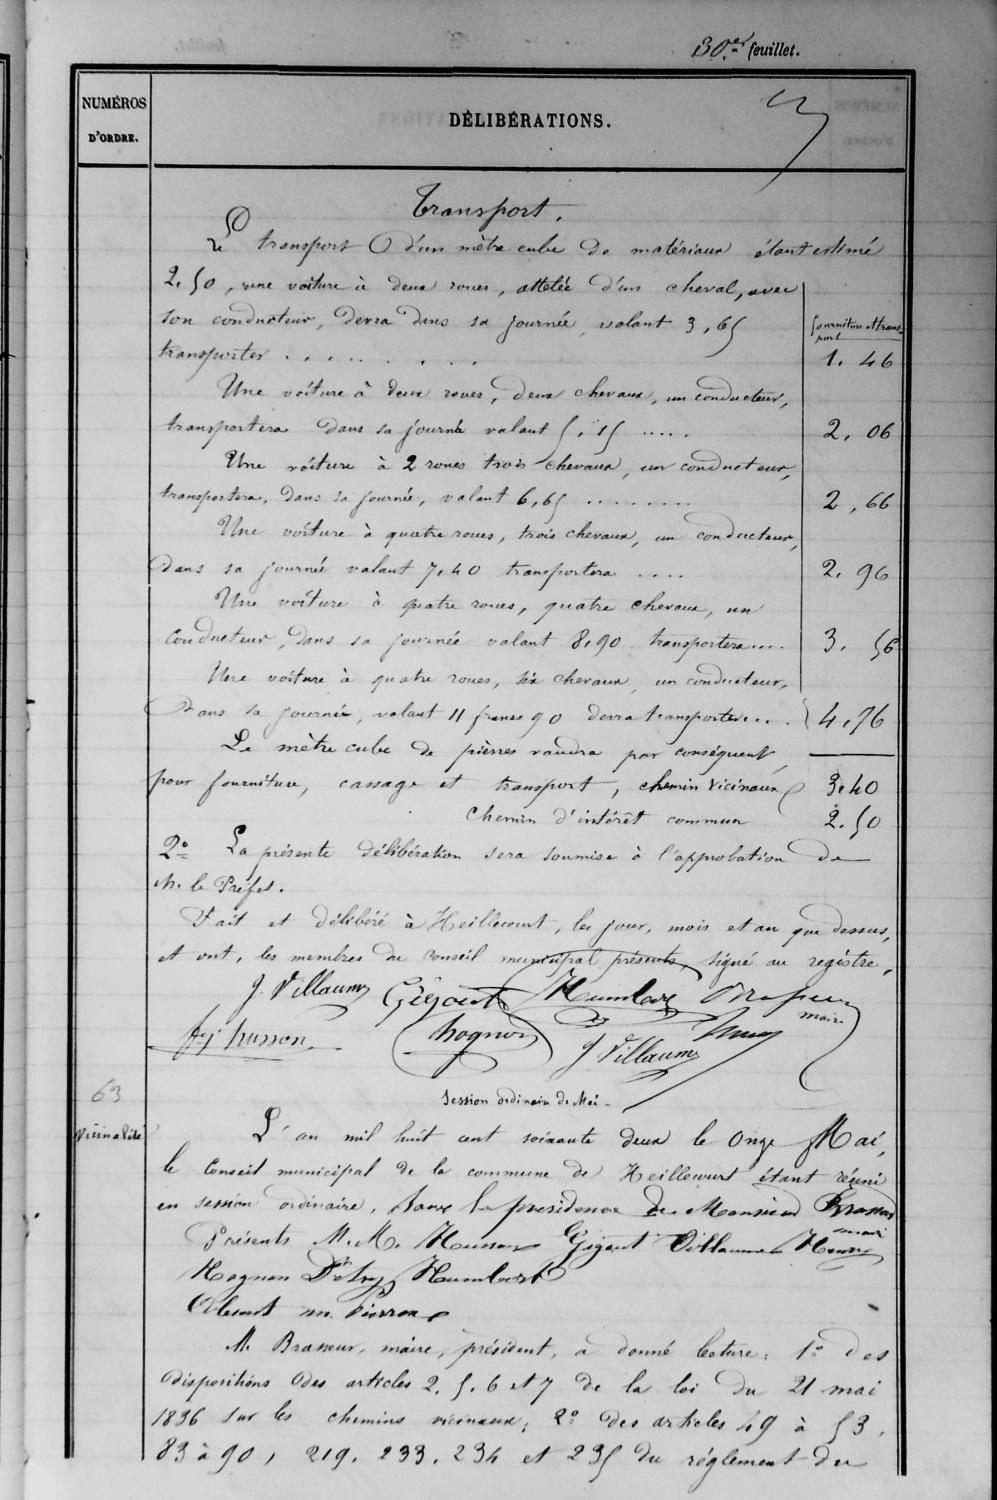 30.e feuillet.
NUMÉROS D'ORDRE.
DÉLIBÉRATIONS.
Transport.
Le transport d'un mètre cube de matériaux étant estimé
2.50, une voiture à deux roues, attelée d'un cheval, avec
son conducteur, devra dans sa journée, valant 3,65
fourniture et transport
transporter . . . . . . . . . 1.46
Une voiture à deux roues, deux chevaux, un conducteur,
transportera dans sa journée valant 5,15 ..... 2,06
Une voiture à 2 roues trois chevaux, un conducteur,
transportera, dans sa journée, valant 6,65 ........ 2,66
Une voiture à quatre roues, trois chevaux, un conducteur,
dans sa journée valant 7,40 transportera .... 2.96
Une voiture à quatre roues, quatre chevaux, un
conducteur, dans sa journée valant 8,90 transportera.... 3.56
Une voiture à quatre roues, six chevaux, un conducteur,
Dans sa journée, valant 11 francs 90 devra transporter... 4,76
Le mètre cube de pierres vaudra par conséquent,
pour fourniture, cassage et transport, chemin vicinaux 3.40
chemin d'intérêt commun 2.50
2° La présente délibération sera soumise à l'approbation de
M. le Préfet.
Fait et délibéré à Heillecourt, les jour, mois et an que dessus,
et ont, les membres du conseil municipal présents, signé au registre,
J. Villaume Gégout Humbert
maire
husson hognon J Villaume
Session ordinaire de Mai.
63
Vicinalité
L'an mil huit cent soixante deux le onze Mai,
le Conseil municipal de la commune de Heillecourt étant réuni
en session ordinaire, sous la présidence de Monsieur Brasseur
maire
Présents M.M. Husson Gigout Villaume Henry
Hognon Humbert
Absent m. Pierron
M. Brasseur, maire, président, a donné lecture: 1° des
dispositions des articles 2, 5, 6 et 7 de la loi du 21 mai
1836 sur les chemins vicinaux; 2° des articles 49 à 53,
83 à 90, 219, 233, 234 et 235 du réglement du